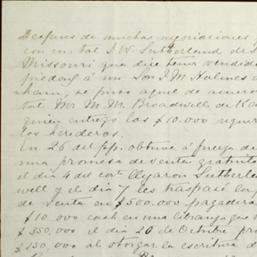 Despues de muchas negociaciones
con un tal J. W. Sutherland de S
Missouri que dice tener vendida
á un Son J. M. Holmes
se puso aquel de acuerdo
tal Mr. M. M. Broadwell de Ka
quien entregó los $10.000
los herederos.
En 26 del pp. obtuve á fuerza de
una promesa de venta gratuita
el dia 4 del cort. Sutherland
well y el dia 7 les traspasé la
de venta en $500.000 pagadera
$10.000 cash en una libranza que v
$350.000 el dia 20 de Octubre pro
$150.000 al otorgar la escritura d